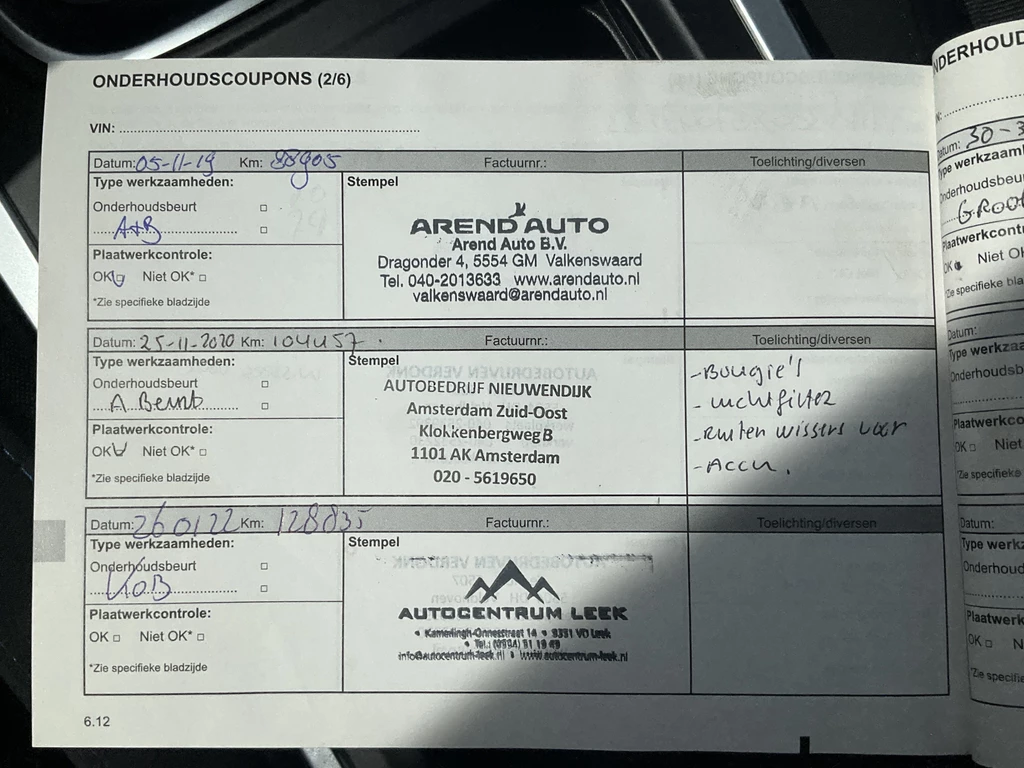 ONDERHOUDSCOUPONS (2/6)
VIN:
Datum: 05-11-19 Km: 88905 Factuurnr.: Toelichting/diversen
Type werkzaamheden: Stempel
Onderhoudsbeurt
A+B
Plaatwerkcontrole:
OK Niet OK*
*Zie specifieke bladzijde
AREND AUTO
Arend Auto B.V.
Dragonder 4, 5554 GM Valkenswaard
Tel. 040-2013633 www.arendauto.nl
valkenswaard@arendauto.nl
Datum: 25-11-2020 Km: 104457 Factuurnr.: Toelichting/diversen
Type werkzaamheden: Stempel
Onderhoudsbeurt
A Beurt
Plaatwerkcontrole:
OK Niet OK*
*Zie specifieke bladzijde
AUTOBEDRIJF NIEUWENDIJK
Amsterdam Zuid-Oost
Klokkenbergweg B
1101 AK Amsterdam
020 - 5619650
- Bougie's
- Luchtfilter
- Ruiten wissers voor
- Accu.
Datum: 260122 Km: 128835 Factuurnr.: Toelichting/diversen
Type werkzaamheden: Stempel
Onderhoudsbeurt
Plaatwerkcontrole:
OK Niet OK*
*Zie specifieke bladzijde
AUTOCENTRUM LEEK
• Kamerlingh-Onnesstraat 14 • 9351 VD Leek
• Tel.: (0594) 51 19 49
info@autocentrum-leek.nl • www.autocentrum-leek.nl
6.12
NDERHOUD
Datum: 30-3
Type werkzaam
Onderhoudsbeu
GROOT
Plaatwerkcontr
OK Niet OK
*Zie specifieke bla
Datum:
Type werkzaa
Onderhoudsb
Plaatwerkco
OK Niet
*Zie specifieke
Datum:
Type werkz
Onderhoud
Plaatwerk
OK N
*Zie specifie